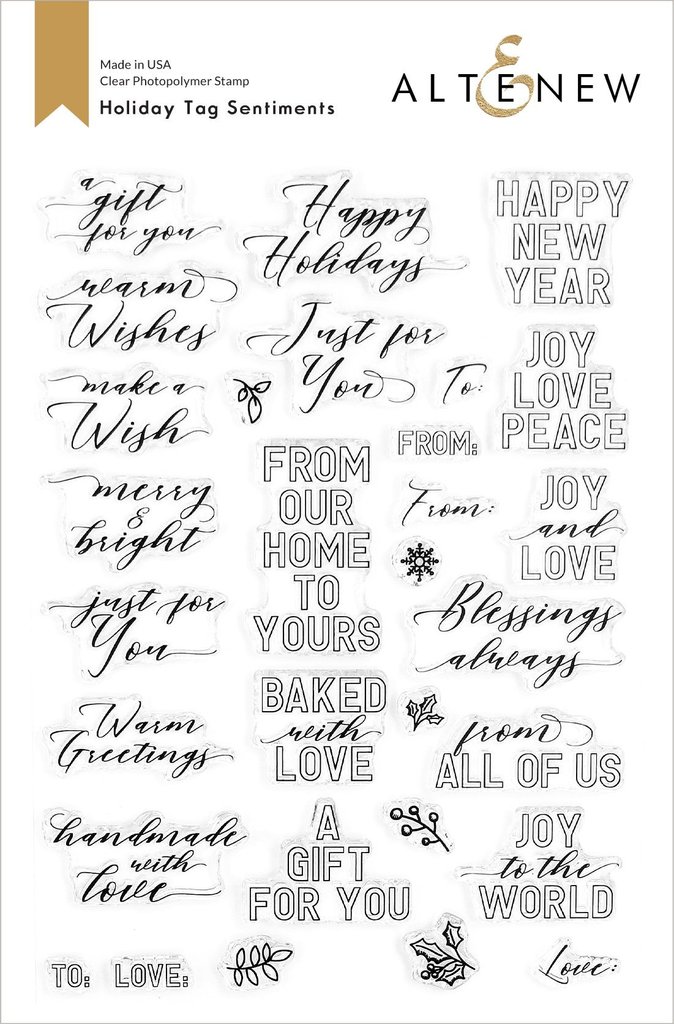 Made in USA
Clear Photopolymer Stamp
Holiday Tag Sentiments
ALTENEW
a
gift
for you
Happy
Holidays
HAPPY
NEW
YEAR
warm
Wishes
Just for
You
To:
JOY
LOVE
PEACE
make a
Wish
FROM:
FROM
OUR
HOME
TO
YOURS
merry
&
bright
From:
JOY
and
LOVE
just for
You
Blessings
always
BAKED
with
LOVE
Warm
Greetings
from
ALL OF US
handmade
with
love
A
GIFT
FOR YOU
JOY
to the
WORLD
TO:
LOVE:
Love: